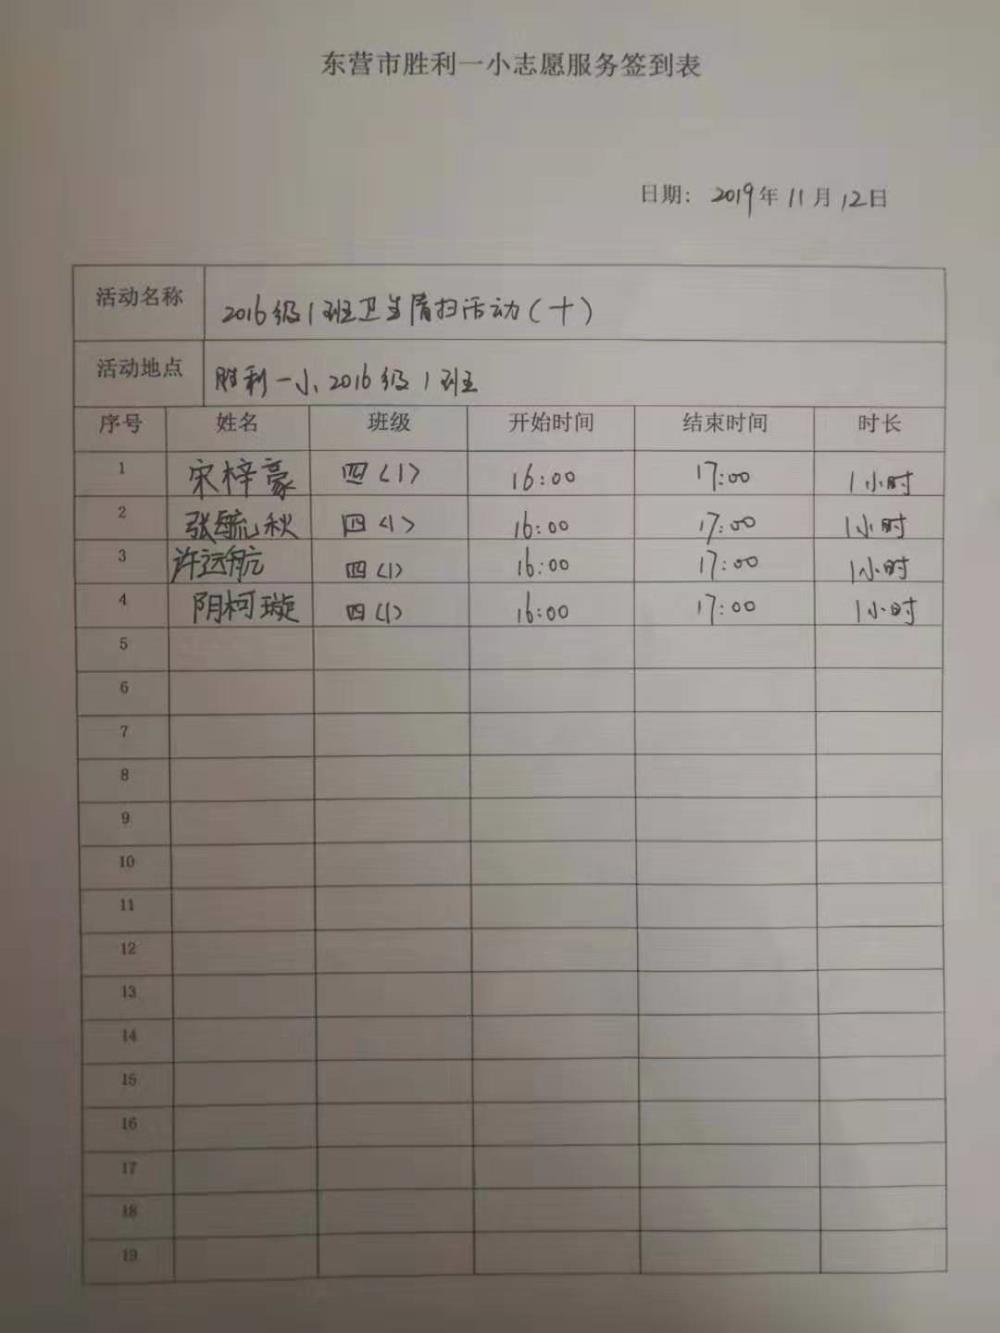 东营市胜利一小志愿服务签到表
日期: 2019年11月12日
活动名称 2016级1班卫生清扫活动(十)
活动地点 胜利一小2016级1班
序号 姓名 班级 开始时间 结束时间 时长
1 宋梓豪 四(1) 16:00 17:00 1小时
2 张毓秋 四(1) 16:00 17:00 1小时
3 许远航 四(1) 16:00 17:00 1小时
4 阴柯璇 四(1) 16:00 17:00 1小时
5
6
7
8
9
10
11
12
13
14
15
16
17
18
19